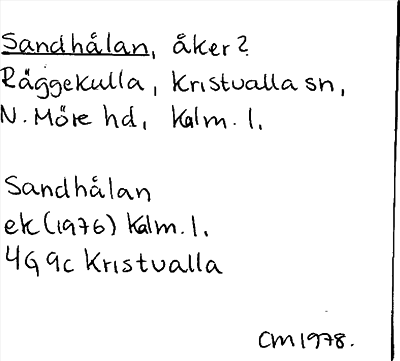 Sandhålan, åker?
Räggekulla, Kristvalla sn,
N. Möre hd, Kalm. l.
Sandhålan
ek (1976) Kalm. l.
4G 9c Kristvalla
CM 1978.